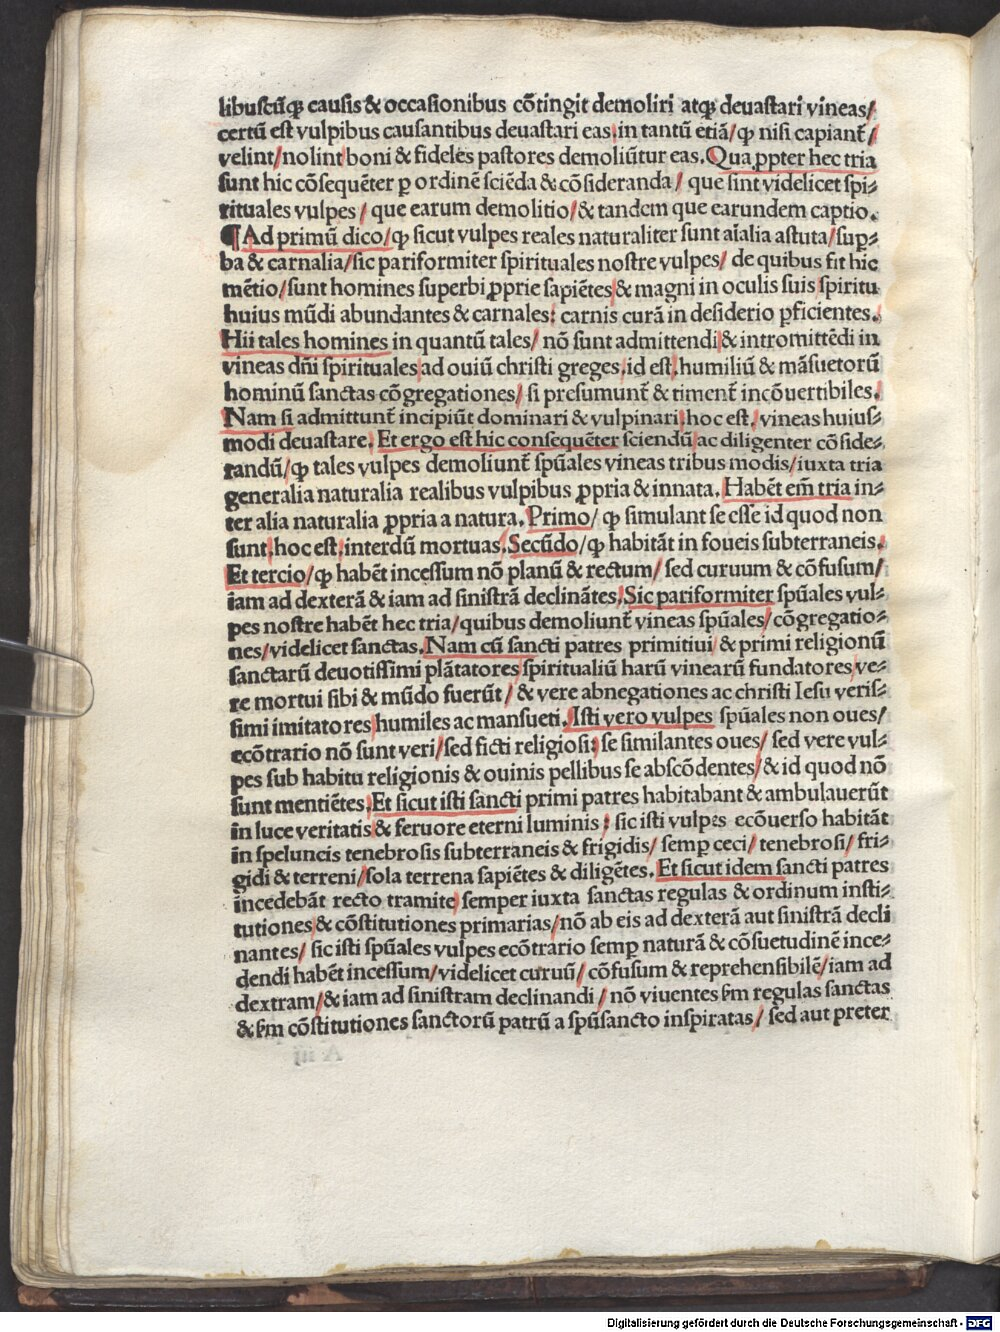 libuſcũqꝫ cauſis & occaſionibus cõtingit demoliri atqꝫ deuaſtari vineas/
certũ eſt vulpibus cauſantibus deuaſtari eas in tantũ etiã/ ꝙ niſi capiant᷑/
velint/nolint boni & fideles paſtores demoliũtur eas. Qua ꝓpter hec tria
ſunt hic cõſequẽter ꝑ ordinẽ ſciẽda & cõſideranda/ que ſint videlicet ſpi⸗
rituales vulpes/ que earum demolitio/& tandem que earundem captio.
¶ Ad primũ dico/ꝙ ſicut vulpes reales naturaliter ſunt aĩalia aſtuta/ſuꝑ⸗
ba & carnalia/ſic pariformiter ſpirituales noſtre vulpes/ de quibus fit hic
mẽtio/ſunt homines ſuperbi ꝓprie ſapiẽtes & magni in oculis ſuis ſpiritu
huius mũdi abundantes & carnales: carnis curã in deſiderio ꝑficientes.
Hii tales homines in quantũ tales/ nõ ſunt admittendi & intromittẽdi in
vineas dñi ſpirituales ad ouiũ chriſti greges. id eſt. humiliũ & mãſuetorũ
hominũ ſanctas cõgregationes/ ſi preſumunt᷑ & timent᷑ incõuertibiles.
Nam ſi admittunt᷑ incipiũt dominari & vulpinari hoc eſt. vineas huiuſ⸗
modi deuaſtare. Et ergo eſt hic conſequẽter ſciendũ ac diligenter cõſide⸗
randũ/ꝙ tales vulpes demoliunt᷑ ſpũales vineas tribus modis/iuxta tria
generalia naturalia realibus vulpibus ꝓpria & innata. Habẽt em̃ tria in⸗
ter alia naturalia ꝓpria a natura. Primo/ ꝙ ſimulant ſe eſſe id quod non
ſunt. hoc eſt. interdũ mortuas. Secũdo/ꝙ habitãt in foueis ſubterraneis.
Et tercio/ꝙ habẽt inceſſum nõ planũ & rectum/ ſed curuum & cõfuſum/
iam ad dexterã & iam ad ſiniſtrã declinãtes. Sic pariformiter ſpũales vul⸗
pes noſtre habẽt hec tria/quibus demoliunt᷑ vineas ſpũales/cõgregatio⸗
nes/videlicet ſanctas. Nam cũ ſancti patres primitiui & primi religionũ
ſanctarũ deuotiſſimi plãtatores ſpiritualiũ harũ vinearũ fundatores ve⸗
re mortui ſibi & mũdo fuerũt/ & vere abnegationes ac chriſti Ieſu veriſ⸗
ſimi imitatores humiles ac manſueti. Iſti vero vulpes ſpũales non oues/
ecõtrario nõ ſunt veri/ſed ficti religioſi: ſe ſimilantes oues/ ſed vere vul⸗
pes ſub habitu religionis & ouinis pellibus ſe abſcõdentes/& id quod nõ
ſunt mentiẽtes. Et ſicut iſti ſancti primi patres habitabant & ambulauerũt
in luce veritatis & feruore eterni luminis: ſic iſti vulpes ecõuerſo habitãt
in ſpeluncis tenebroſis ſubterraneis & frigidis/ ſemꝑ ceci/ tenebroſi/ fri⸗
gidi & terreni/ſola terrena ſapiẽtes & diligẽtes. Et ſicut idem ſancti patres
incedebãt recto tramite ſemper iuxta ſanctas regulas & ordinum inſti⸗
tutiones & cõſtitutiones primarias/nõ ab eis ad dexterã aut ſiniſtrã decli
nantes/ ſic iſti ſpũales vulpes ecõtrario ſemꝑ naturã & cõſuetudinẽ ince⸗
dendi habẽt inceſſum/videlicet curuũ/ cõfuſum & reprehenſibilẽ/iam ad
dextram/& iam ad ſiniſtram declinandi/ nõ viuentes ẜm regulas ſanctas
& ẜm cõſtitutiones ſanctorũ patrũ a ſpũſancto inſpiratas/ ſed aut preter
Digitalisierung gefördert durch die Deutsche Forschungsgemeinschaft - DFG